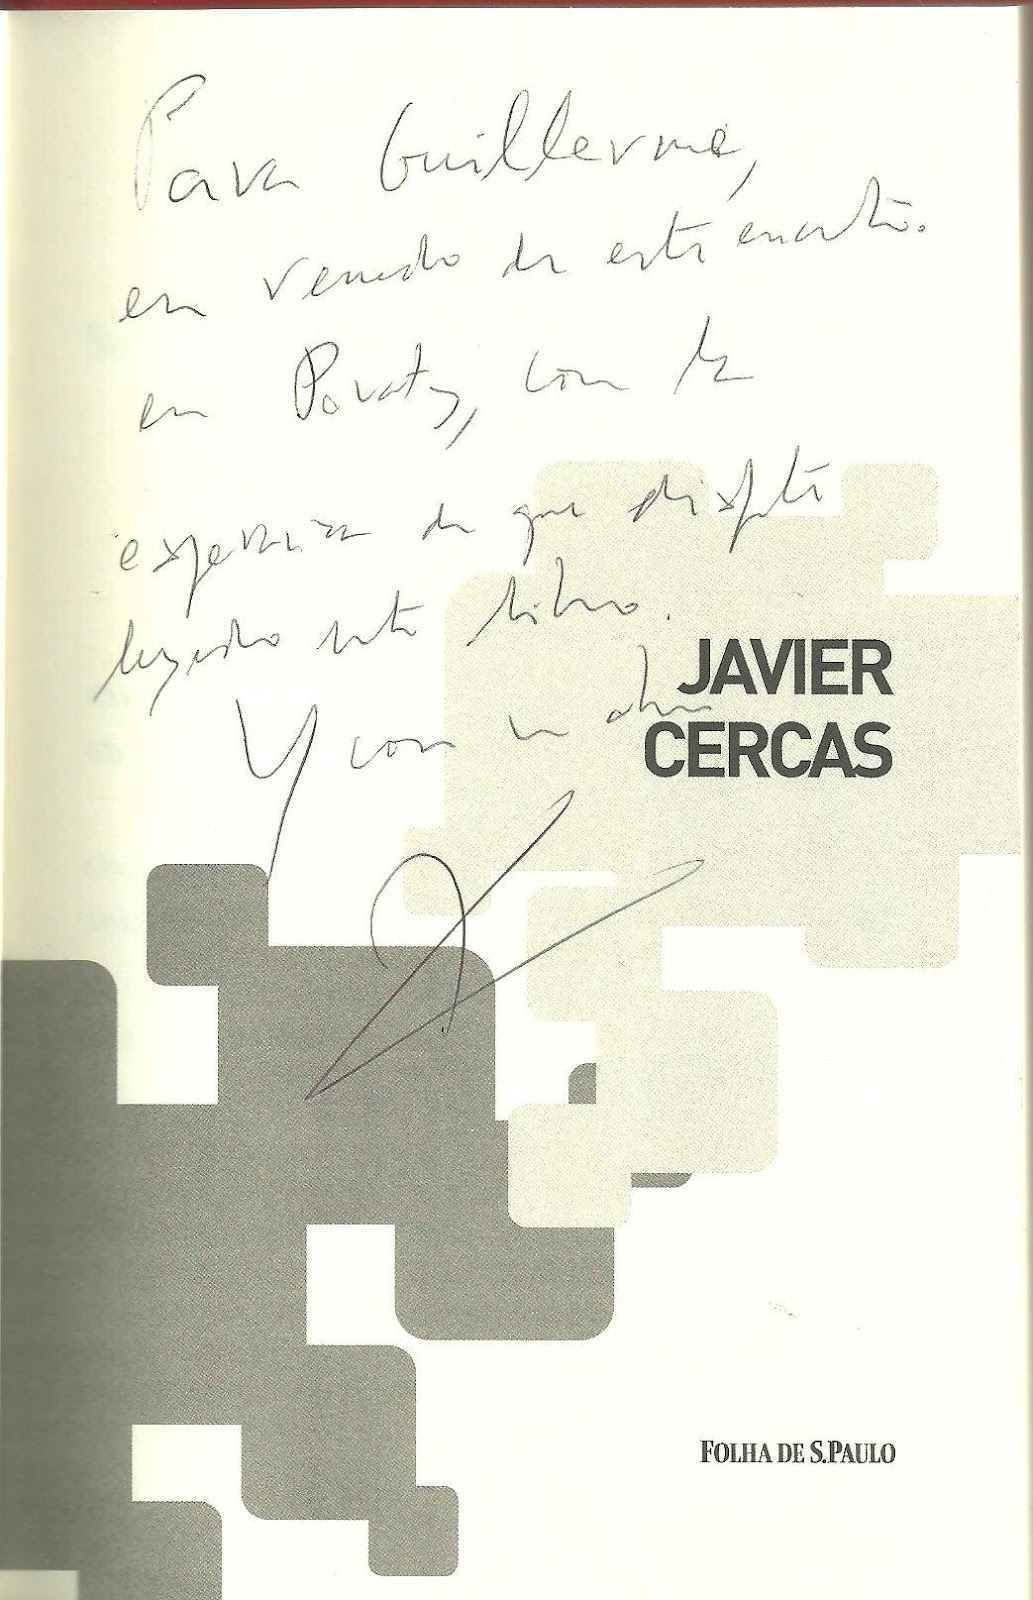 Para Guillerme,
en recuerdo de este encuentro.
en Paraty, con la
esperanza de que disfrute
leyendo este libro.
Y con un abrazo
JAVIER
CERCAS
FOLHA DE S.PAULO